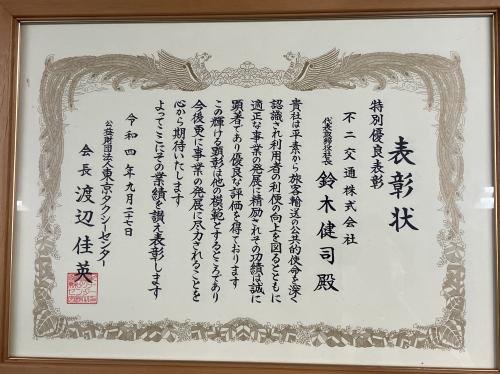 表彰状
特別優良表彰
不二交通株式会社
代表取締役社長 鈴木健司殿
貴社は平素から旅客輸送の公共的使命を深く
認識され利用者の利便の向上を図るとともに
適正な事業の発展に精励されその功績は誠に
顕著であり優良な評価を得ております
この輝ける顕彰は他の模範とするところであり
今後更に事業の発展に尽力されることを
心から期待いたします
よってここにその業績を讃え表彰します
令和四年九月二十七日
公益財団法人東京タクシーセンター
会長 渡辺佳英